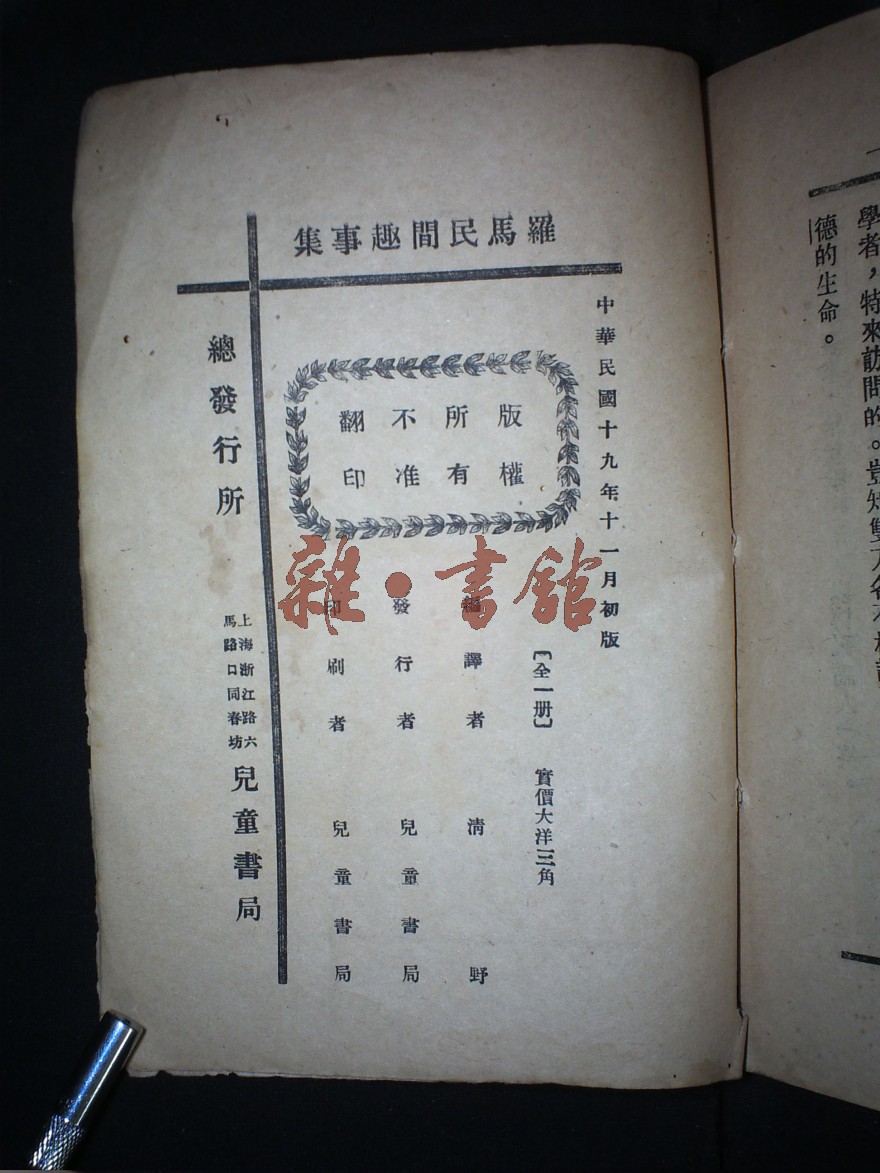 羅馬民間趣事集
中華民國十九年十一月初版
版權
所有
不准
翻印
〔全一册〕 實價大洋三角
編譯者 清野
發行者 兒童書局
印刷者 兒童書局
總發行所
上海浙江路六
馬路口同春坊
兒童書局
雜·書館
學者，特來訪問的。豈知雙方各不相
德的生命。